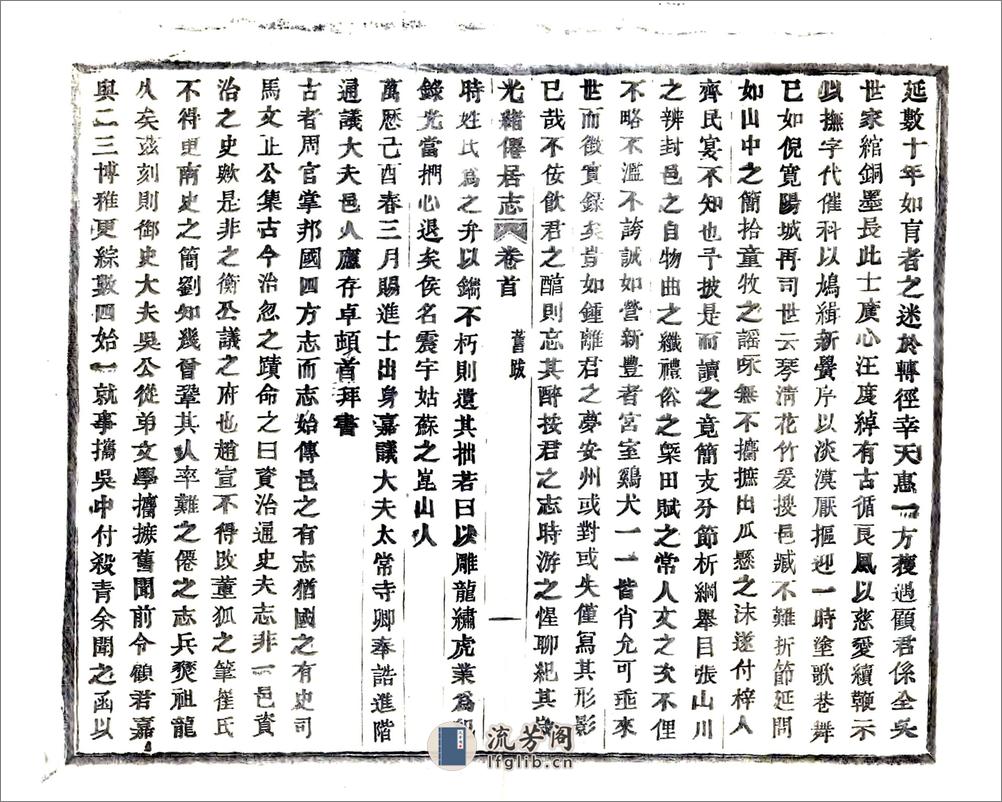 延數十年如肓者之迷於轉徑幸天惠一方獲遇顧君係全吳
世家綰銅墨長此士廣心汪度綽有古循良風以慈愛續鞭示
以撫字代催科以鳩緝新黌序以淡漠厭摳迎一時塗歌巷舞
已如倪寬陽城再司世云琴淸花竹爰搜邑臧不難折節延問
如山中之簡拾童牧之謡咏無不攟摭出瓜懸之沫遂付梓人
齊民宴不知也予披是而讀之竟簡支分節析綱舉目張山川
之辨封邑之自物曲之纖禮俗之槩田賦之常人文之次不俚
不略不濫不誇誠如營新豐者宮室鷄犬一一皆肖允可垂來
世而徵實錄矣昔如鍾離君之夢安州或對或失僅寫其形影
已哉不佞飲君之醕則忘其醉按君之志時游之惺聊紀其
光緖僊居志 卷首 舊跋 一
時姓氏爲之弁以鐫不朽則遺其拙若曰以雕龍繡虎業爲
錄尤當捫心退矣侯名震宇姑蘇之崑山人
萬歷己酉春三月賜進士出身嘉議大夫太常寺卿奉誥進階
通議大夫邑人應存卓頓首拜書
古者周官掌邦國四方志而志始傳邑之有志猶國之有史司
馬文正公集古今治忽之蹟命之曰資治通史夫志非一邑資
治之史歟是非之衡公議之府也趙宣不得改董狐之筆崔氏
不得更南史之簡劉知幾曾鞏其人率難之僊之志兵燹祖龍
久矣玆刻則御史大夫吳公從弟文學攟摭舊聞前令顧君嘉
與二三博雅更綜數四始一就事攜吳中付殺青余聞之函以
流芳阁
lfglib.cn